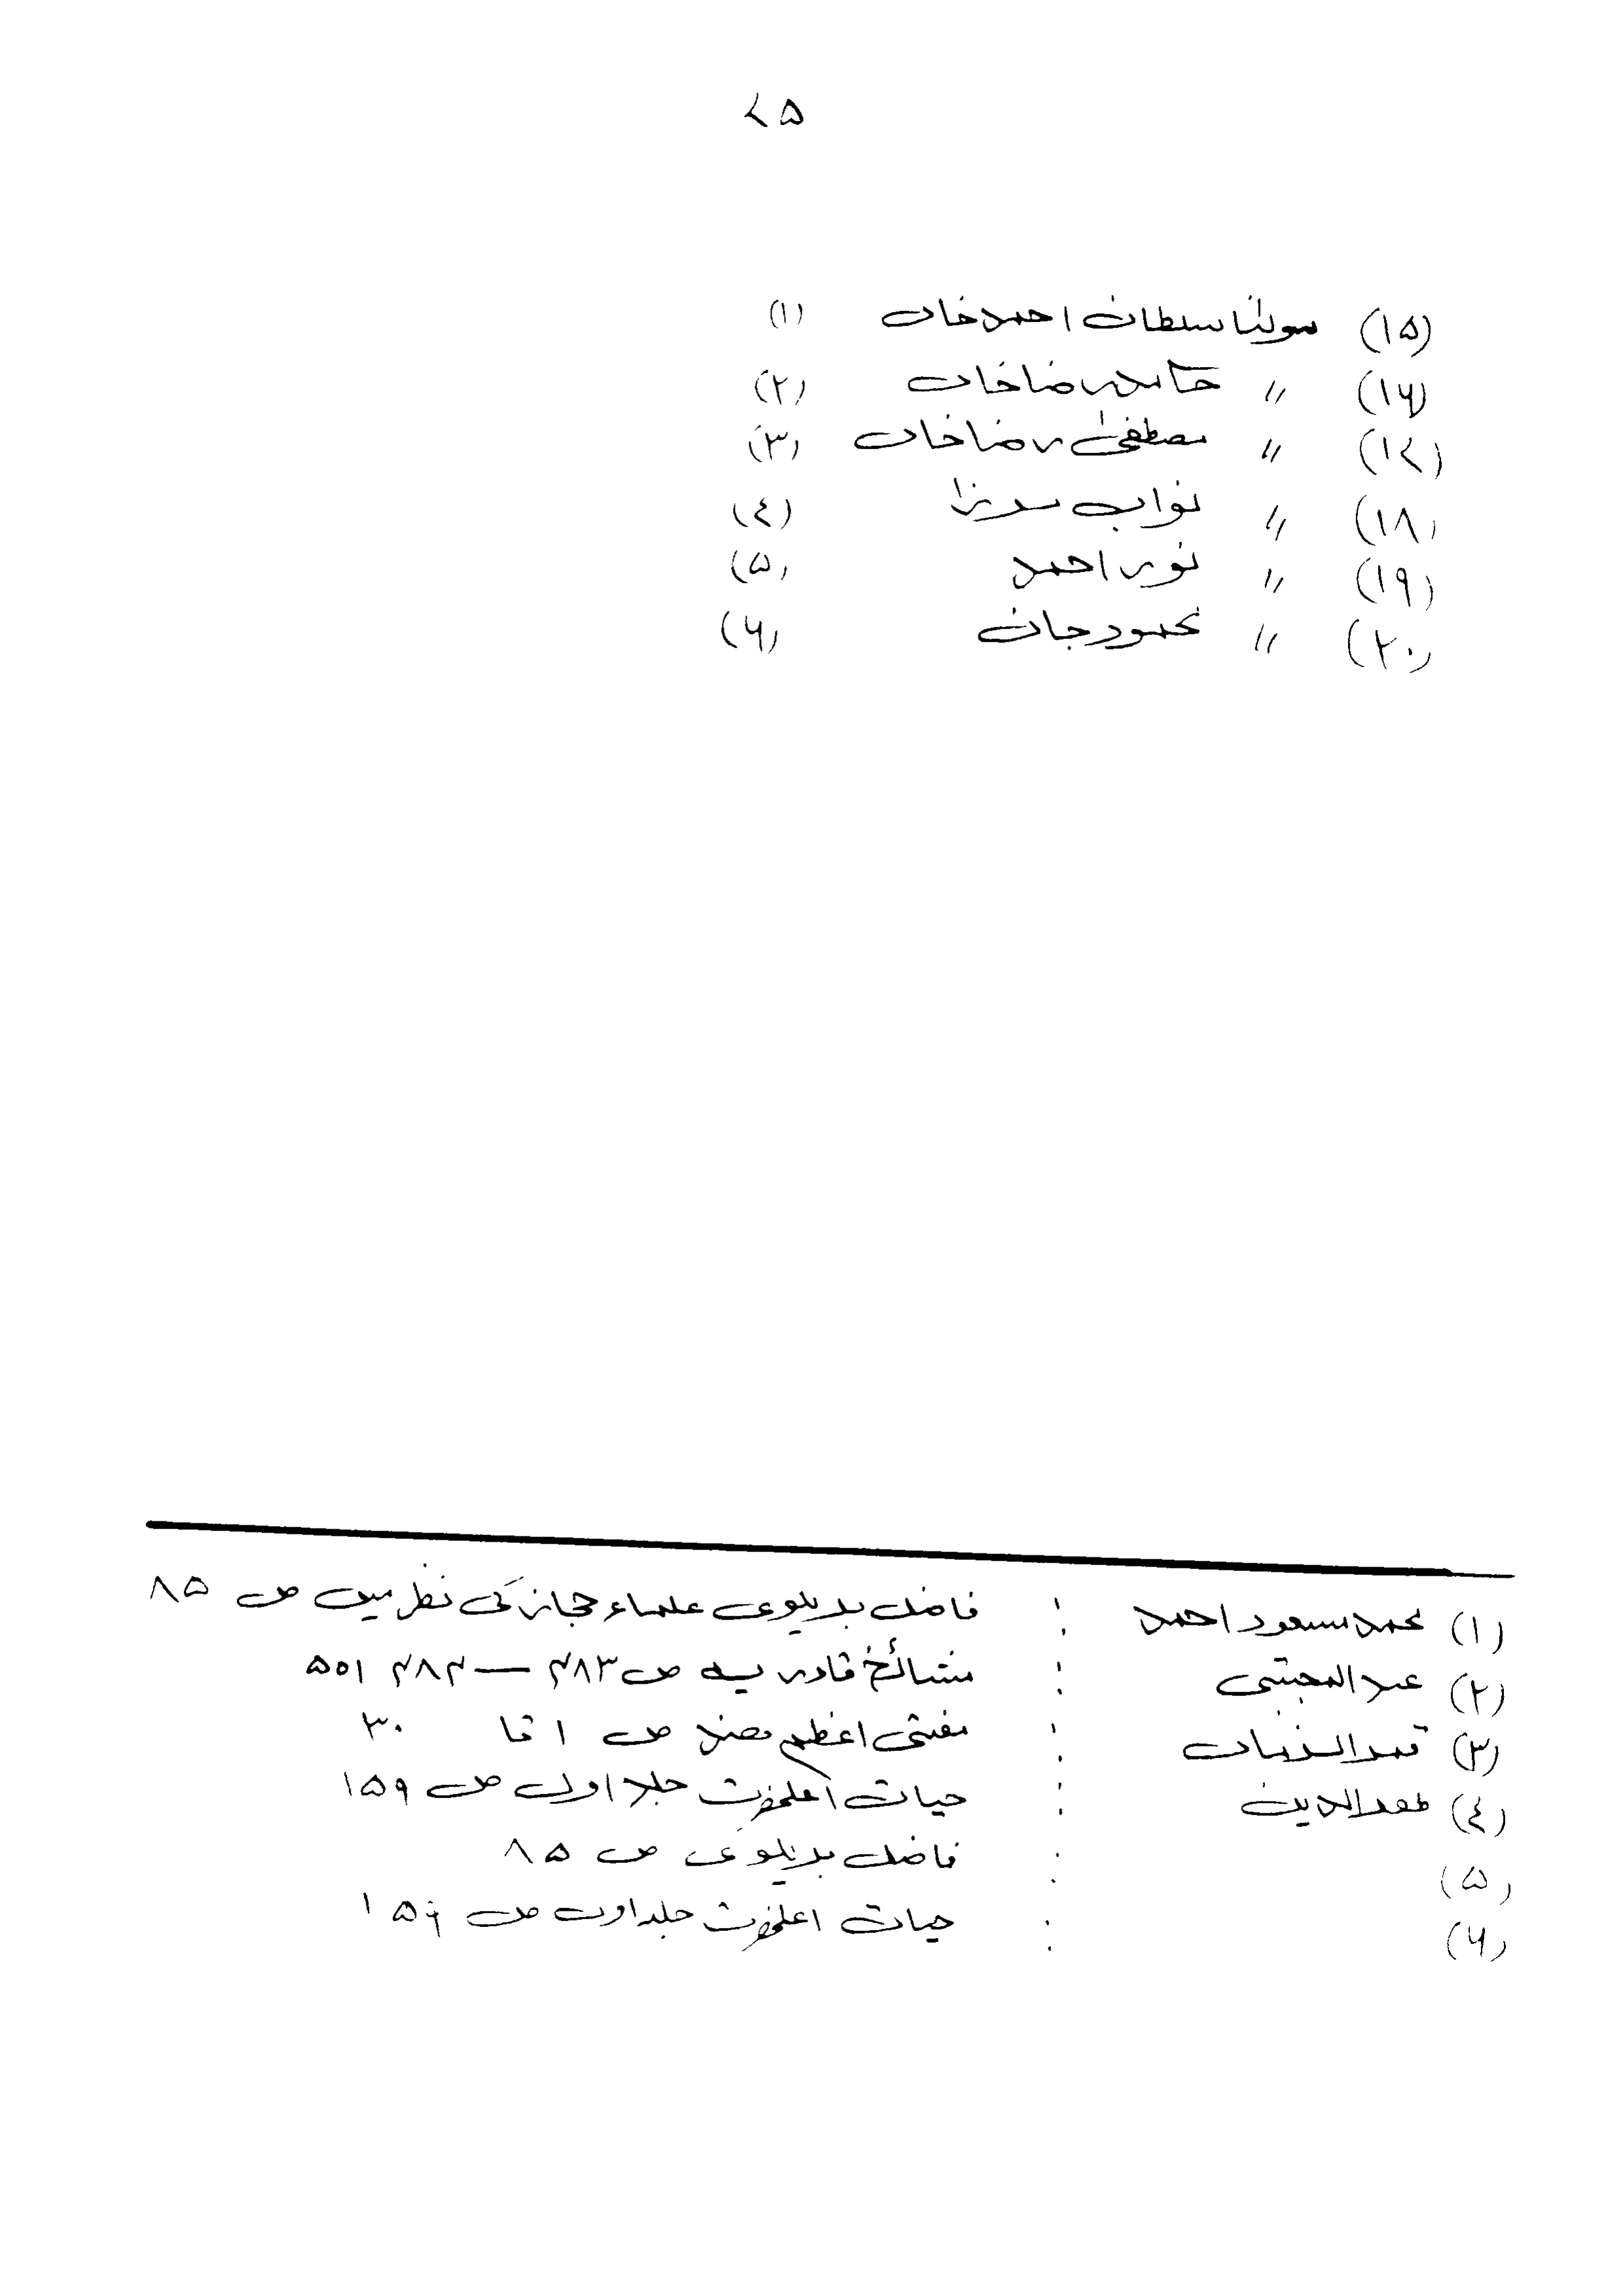 ۷۵
(۱۵) مولٰنا سلطان احمد خان (۱)
(۱۶) 〃 حامد رضا خان (۲)
(۱۷) 〃 مصطفیٰ رضا خان (۳)
(۱۸) 〃 نواب مرزا (٤)
(۱۹) 〃 نور احمد (۵)
(۲۰) 〃 محمود جان (۶)
(۱) محمد مسعود احمد : فاضل بریلوی علماء حجاز کی نظر میں ص ۸۵
(۲) عبد المجتبیٰ : مشائخ قادریہ ص ۴۸۳ — ۴۸۴ ۵۵۱
(۳) قمر : مفتی اعظم ھند ص ۱ تا ۳۰
(٤) ظفر الدین : حیات اعلحضرت جلد اول ص ۱۵۹
(۵) : فاضل بریلوی ص ۸۵
(۶) : حیات اعلحضرت جلد اول ص ۱۵۹